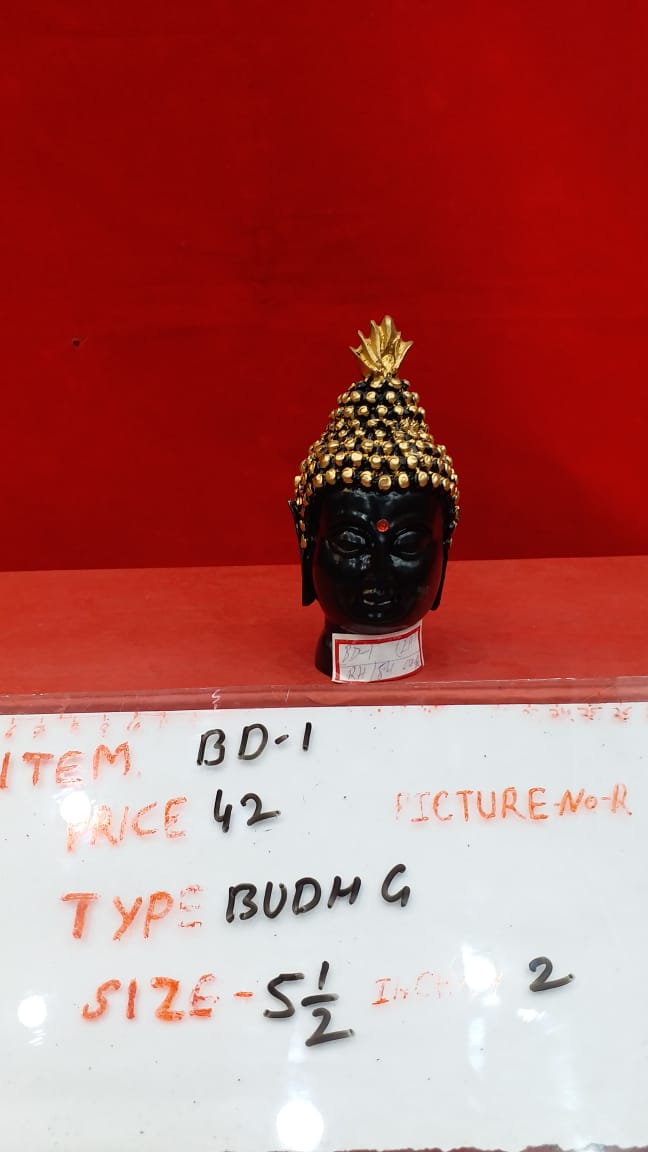 BD-1
ITEM BD-1
PRICE 42 PICTURE-No-R
TYPE BUDH G
SIZE - 5 1/2 2